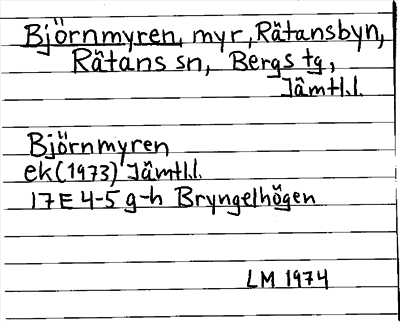 Björnmyren, myr, Rätansbyn,
Rätans sn, Bergs tg,
Jämtl.l.
Björnmyren
ek(1973) Jämtl.l.
17E 4-5 g-h Bryngelhögen
LM 1974